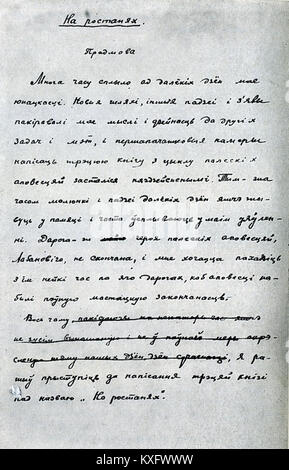 На ростанях.
Прадмова
Многа часу сплыло ад далёкіх дзён мае
юнацкасці. Новыя шляхі, іншыя падзеі і з'явы
пакіравалі мае мыслі і дзейнасць да другіх
задач і мэт, і першапачатковыя намеры
напісаць трэцюю кнігу з цыклу палескіх
аповесцей засталіся няздзейсненымі. Тым-ча
часом малюнкі і падзеі далёкіх дзён яшчэ жы-
вуць у памяці і часта ўсплываюць у маім уяўлен-
ні. Дарога-ж героя палескіх аповесцей,
Лабановіча, не скончана, і мне хочацца пахадзіць
з ім нейкі час па яго дарогах, каб аповесці на-
былі поўную мастацкую закончанасць.
Вось чаму,
не зусім і не ў поўнай меры
дзён, я ра-
шыў прыступіць да напісання трэцяй кнігі
пад назваю „На ростанях".
alamy
alamy stock photo
KXFWWW